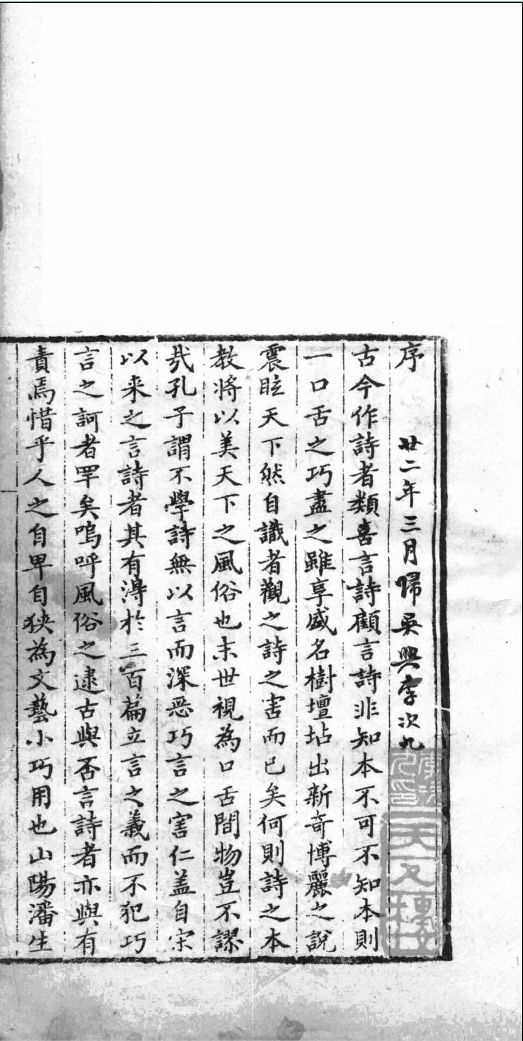 序　廿二年三月歸吳興李次九
古今作詩者類喜言詩顧言詩非知本不可不知本則
一口舌之巧盡之雖享盛名樹壇坫出新奇博麗之說
震眩天下然自識者觀之詩之害而已矣何則詩之本
教將以美天下之風俗也末世視為口舌間物豈不謬
哉孔子謂不學詩無以言而深惡巧言之害仁盖自宋
以來之言詩者其有淂於三百扁立言之義而不犯巧
言之訶者罕矣嗚呼風俗之逮古與否言詩者亦與有
責焉惜乎人之自卑自狹為文藝小巧用也山陽潘生